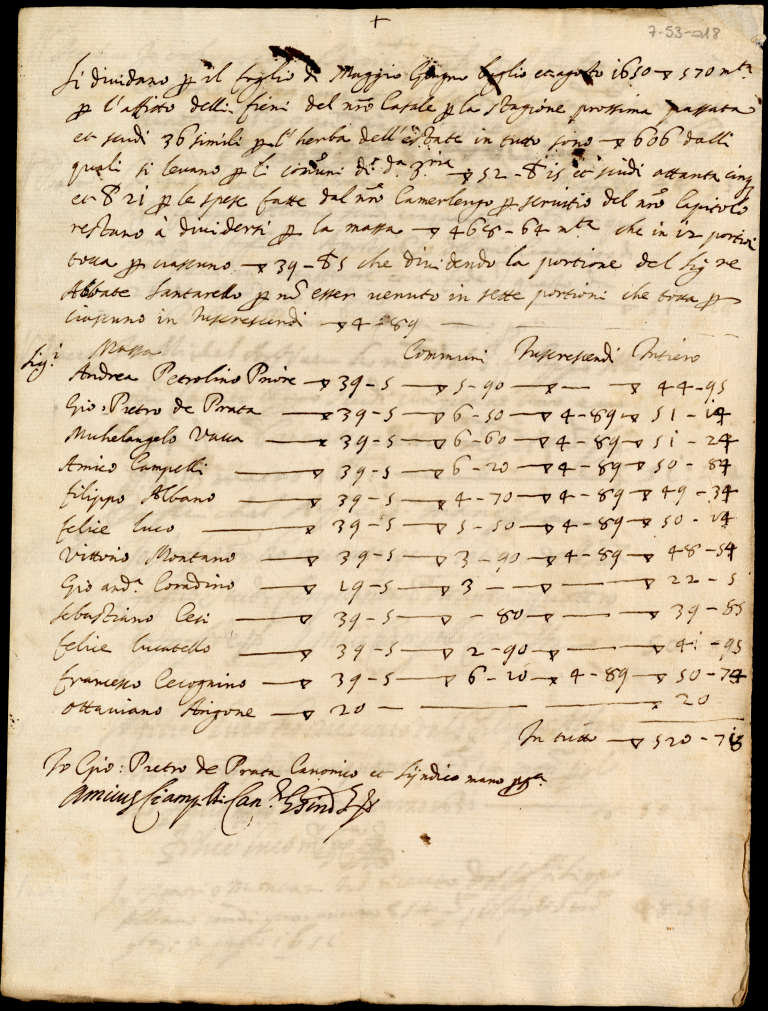 +
7-53-218
Si dividano p il foglio di Maggio Giugno luglio et agosto 1650 ▽ 570 mta
p l'affitto delli fieni del nro Casale p la stagione prossima passata
et scudi 36 simili p l'herba dell'estate in tutto sono ▽ 606 dalli
quali si levano p li comuni ▽ 52 - et scudi ottanta cinq
et 21 p le spese fatte dal nro Camerlengo p servitio del nro Capitolo
restano à dividersi p la massa ▽ 468-64 mta che in 12 portioni
tocca p ciascuno ▽ 39-5 che dividendo la portione del Sigre
Abbate Santarello p nō esser venuto in sette portioni che tocca p
ciascuno in Inscrescendi ▽ 4-89
Massa Communi Inscrescendi Intiero
Sigi Andrea Petrolino Priore ▽ 39-5 ▽ 5-90 ▽ — ▽ 44-95
Gio: Pietro de Prata ▽ 39-5 ▽ 6-50 ▽ 4-89 ▽ 51-14
Michelangelo Vacca ▽ 39-5 ▽ 6-60 ▽ 4-89 ▽ 51-24
Amico Campelli ▽ 39-5 ▽ 6-20 ▽ 4-89 ▽ 50-84
filippo Albano ▽ 39-5 ▽ 4-70 ▽ 4-89 ▽ 49-34
felice luco ▽ 39-5 ▽ 5-50 ▽ 4-89 ▽ 50-14
Vittorio Montano ▽ 39-5 ▽ 3-90 ▽ 4-89 ▽ 48-54
Gio anda Coradino ▽ 19-5 ▽ 3 — ▽ — ▽ 22-5
Sebastiano Cesi ▽ 39-5 ▽ -80 ▽ — ▽ 39-85
felice lucatello ▽ 39-5 ▽ 2-90 ▽ — ▽ 41-95
francesco Cecognino ▽ 39-5 ▽ 6-20 ▽ 4-89 ▽ 50-74
Ottaviano Arigone ▽ 20 — — ▽ 20
In tutto ▽ 520-78
Io Gio: Pietro de Prata Canonico et Sindico mano ppa
Amicus Ciampelli Can.